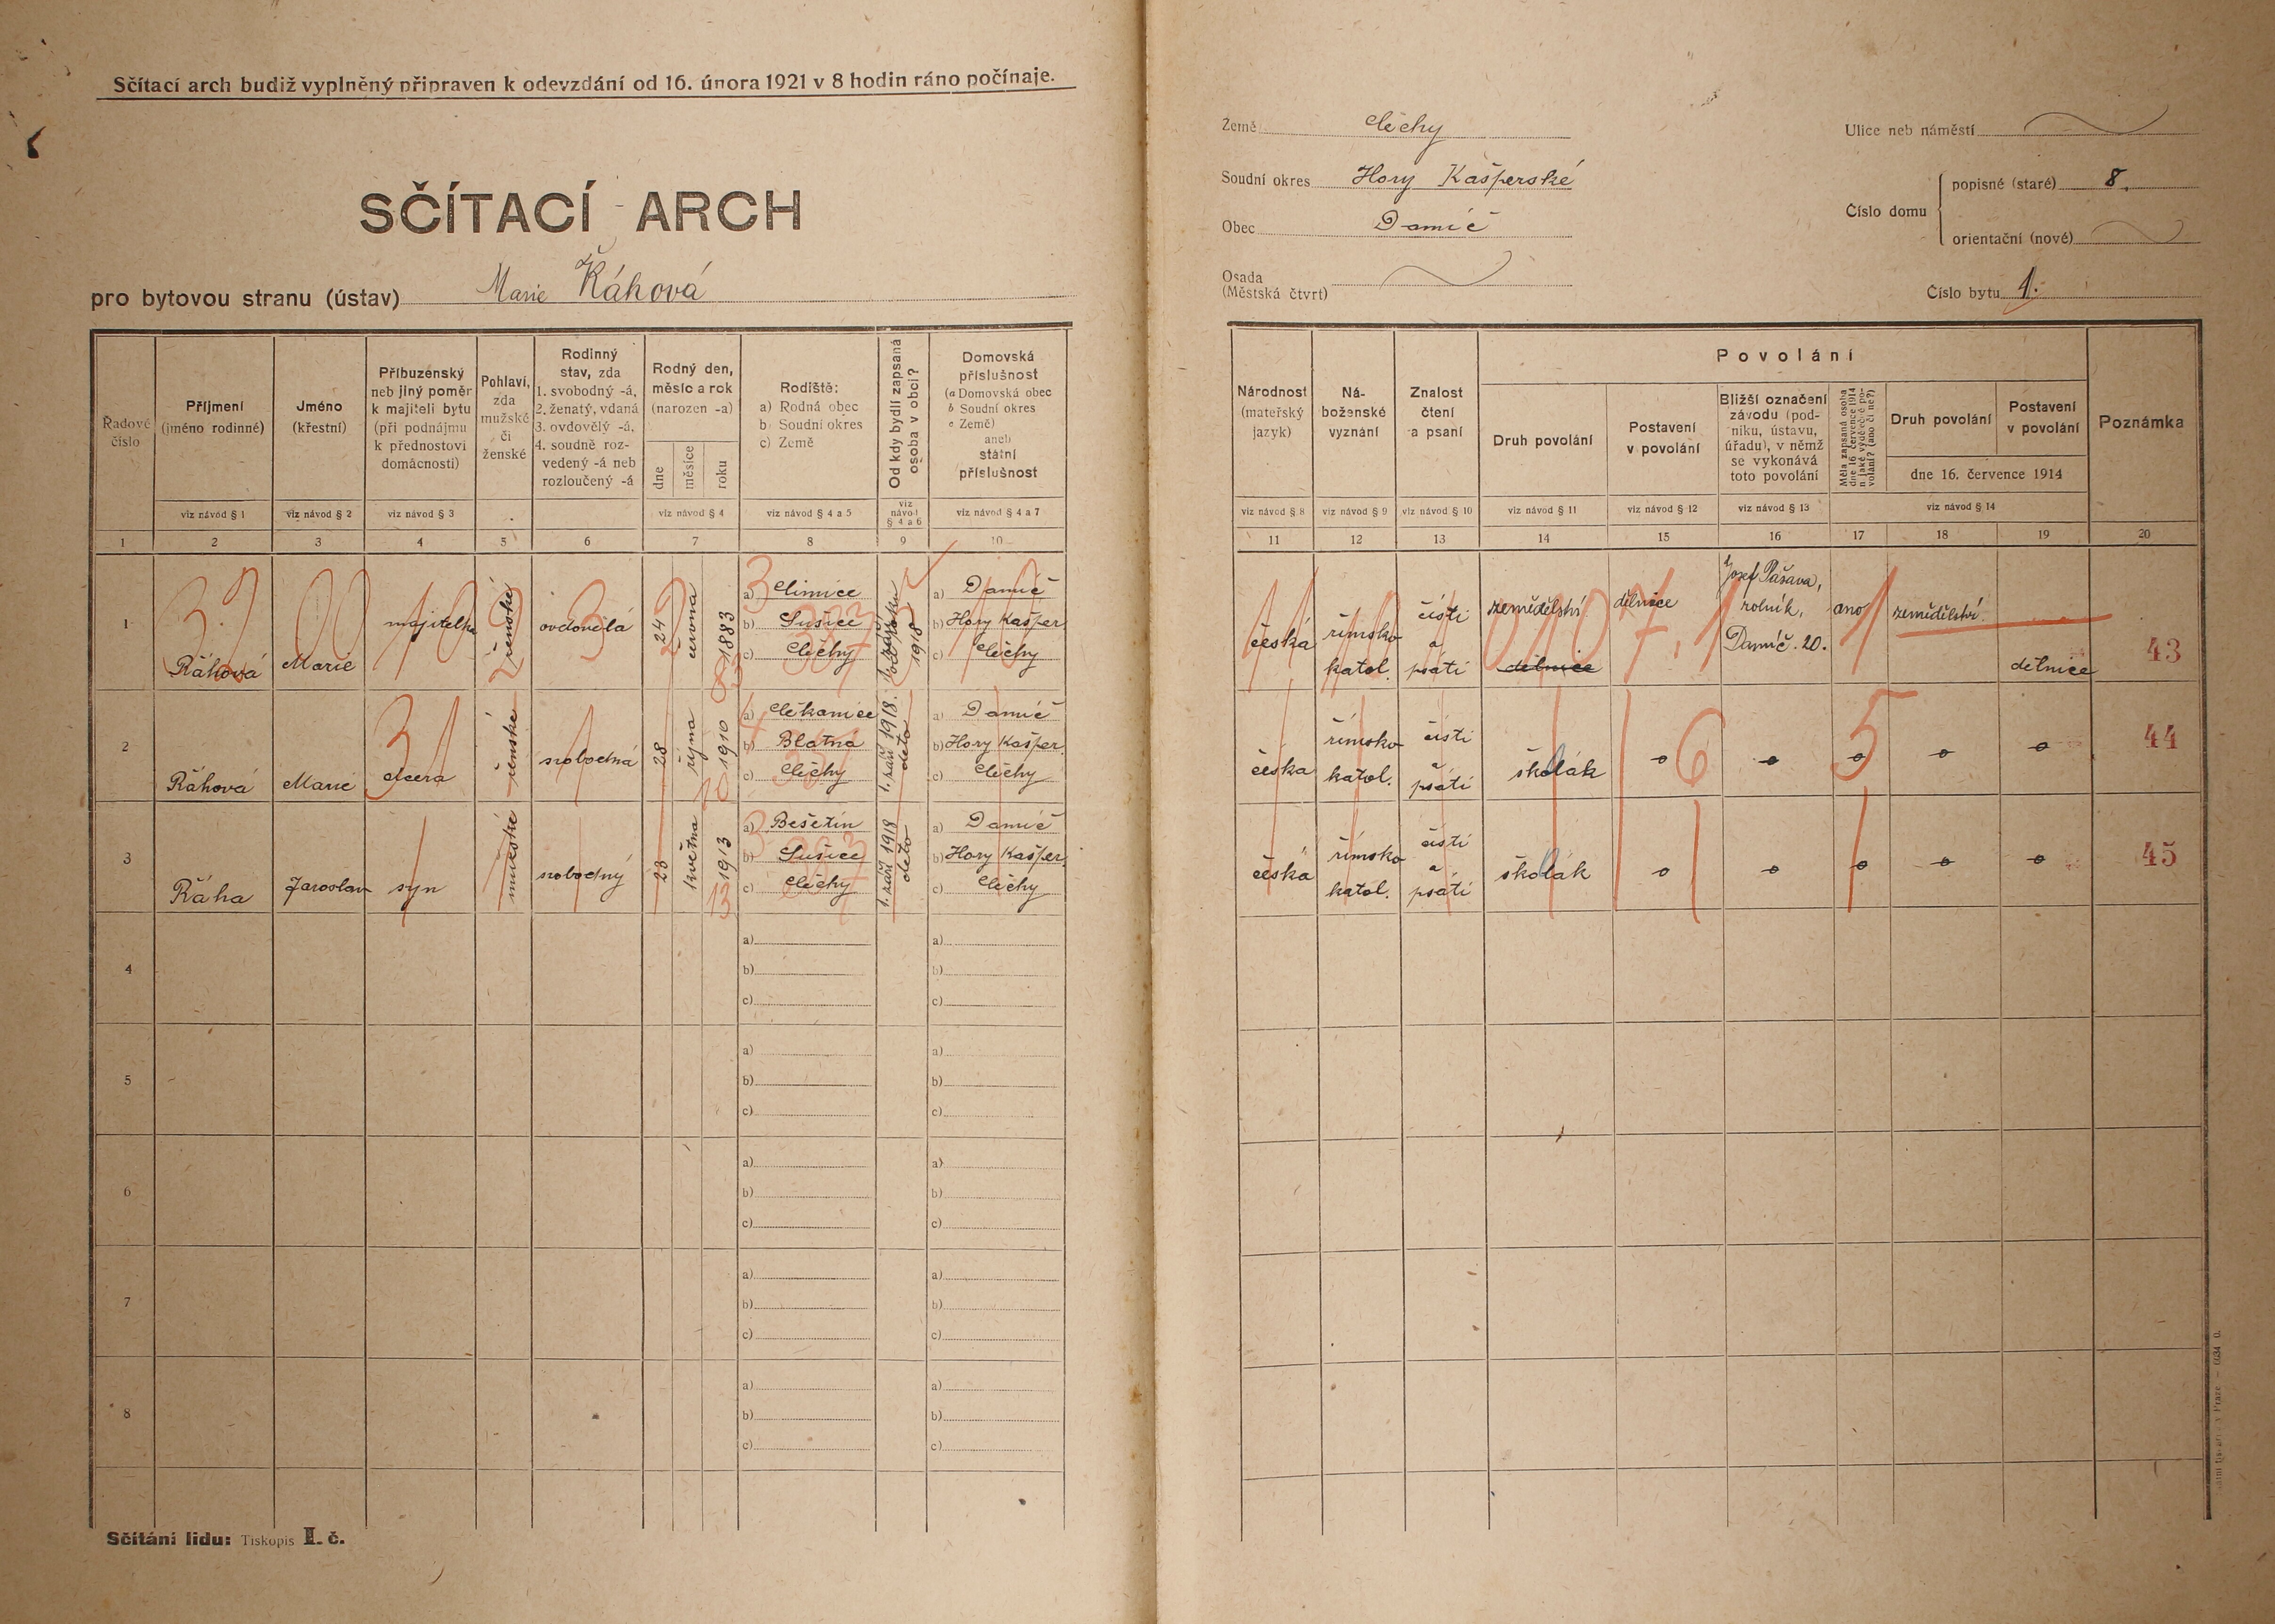 Sčítací arch budiž vyplněný připraven k odevzdání od 16. února 1921 v 8 hodin ráno počínaje.
SČÍTACÍ ARCH
pro bytovou stranu (ústav) Marie Řáhová
Země Čechy
Soudní okres Hory Kašperské
Obec Damíč
Osada
(Městská čtvrť)
Ulice neb náměstí
Číslo domu
popisné (staré) 8.
orientační (nové)
Číslo bytu 1.
Řadové číslo
Příjmení (jméno rodinné)
Jméno (křestní)
Příbuzenský neb jiný poměr k majiteli bytu (při podnájmu k přednostovi domácnosti)
Pohlaví, zda mužské či ženské
Rodinný stav, zda 1. svobodný -á, 2. ženatý, vdaná 3. ovdovělý -á, 4. soudně rozvedený -á neb rozloučený -á
Rodný den, měsíc a rok (narozen -a)
dne měsíce roku
Rodiště: a) Rodná obec b) Soudní okres c) Země
Od kdy bydlí zapsaná osoba v obci?
Domovská příslušnost (a Domovská obec b Soudní okres c Země) aneb státní příslušnost
viz návod § 1 viz návod § 2 viz návod § 3 viz návod § 4 viz návod § 4 a 5 viz návod § 4 a 6 viz návod § 4 a 7
1 2 3 4 5 6 7 8 9 10
Národnost (mateřský jazyk)
Náboženské vyznání
Znalost čtení a psaní
Povolání
Druh povolání
Postavení v povolání
Bližší označení závodu (podniku, ústavu, úřadu), v němž se vykonává toto povolání
Měla zapsaná osoba dne 16 července 1914 n. jaké výdělečné povolání? (ano či ne?)
Druh povolání
Postavení v povolání
dne 16. července 1914
Poznámka
viz návod § 8 viz návod § 9 viz návod § 10 viz návod § 11 viz návod § 12 viz návod § 13 viz návod § 14
11 12 13 14 15 16 17 18 19 20
1 Řáhová Marie majitelka ženské ovdovělá 24 června 1883
a) Čimice
b) Sušice
c) Čechy
1918
a) Damíč
b) Hory Kašper.
c) Čechy
česká římsko katol. čísti a psáti zemědělství dělnice dělnice
Josef Pašava,
rolník,
Damíč. 20.
ano zemědělství dělnice 43
2 Řáhová Marie dcera ženské svobodná 28 října 1910
a) Čekanice
b) Blatná
c) Čechy
1. září 1918.
deto
a) Damíč
b) Hory Kašper.
c) Čechy
česka římsko katol. čísti a psáti školák 44
3 Řáha Jaroslav syn mužské svobodný 23 května 1913
a) Bešetín
b) Sušice
c) Čechy
1. září 1918
deto
a) Damíč
b) Hory Kašper.
c) Čechy
česká římsko katol. čísti a psáti školák 45
4 a) a)
b) b)
c) c)
5 a) a)
b) b)
c) c)
6 a) a)
b) b)
c) c)
7 a) a)
b) b)
c) c)
8 a) a)
b) b)
c) c)
Sčítání lidu: Tiskopis I. č.